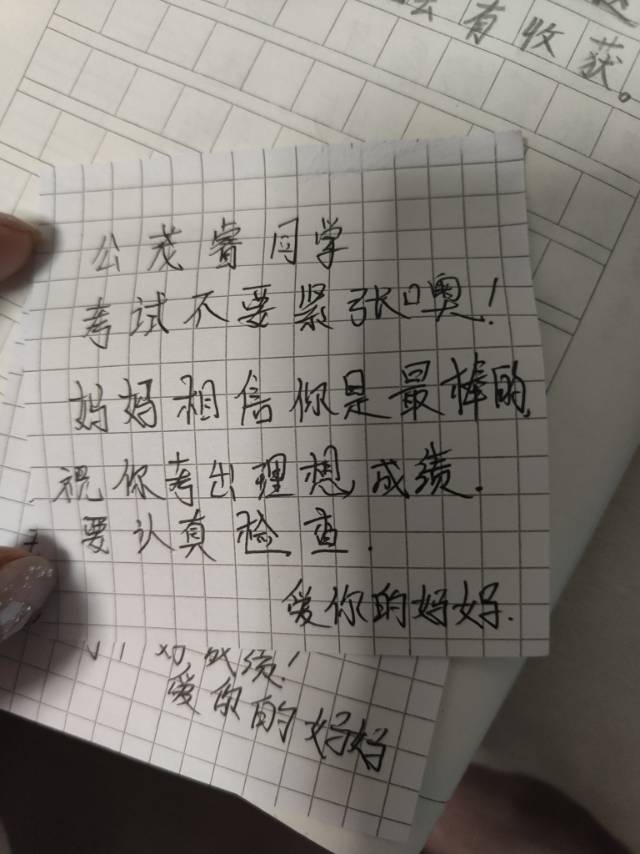 会有收获。
公茂睿同学
考试不要紧张噢！
妈妈相信你是最棒的,
祝你考出理想成绩.
要认真检查.
爱你的好好.
成绩！
爱你的好好